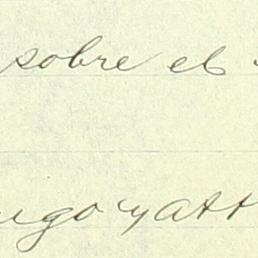 sobre el
ugo y att